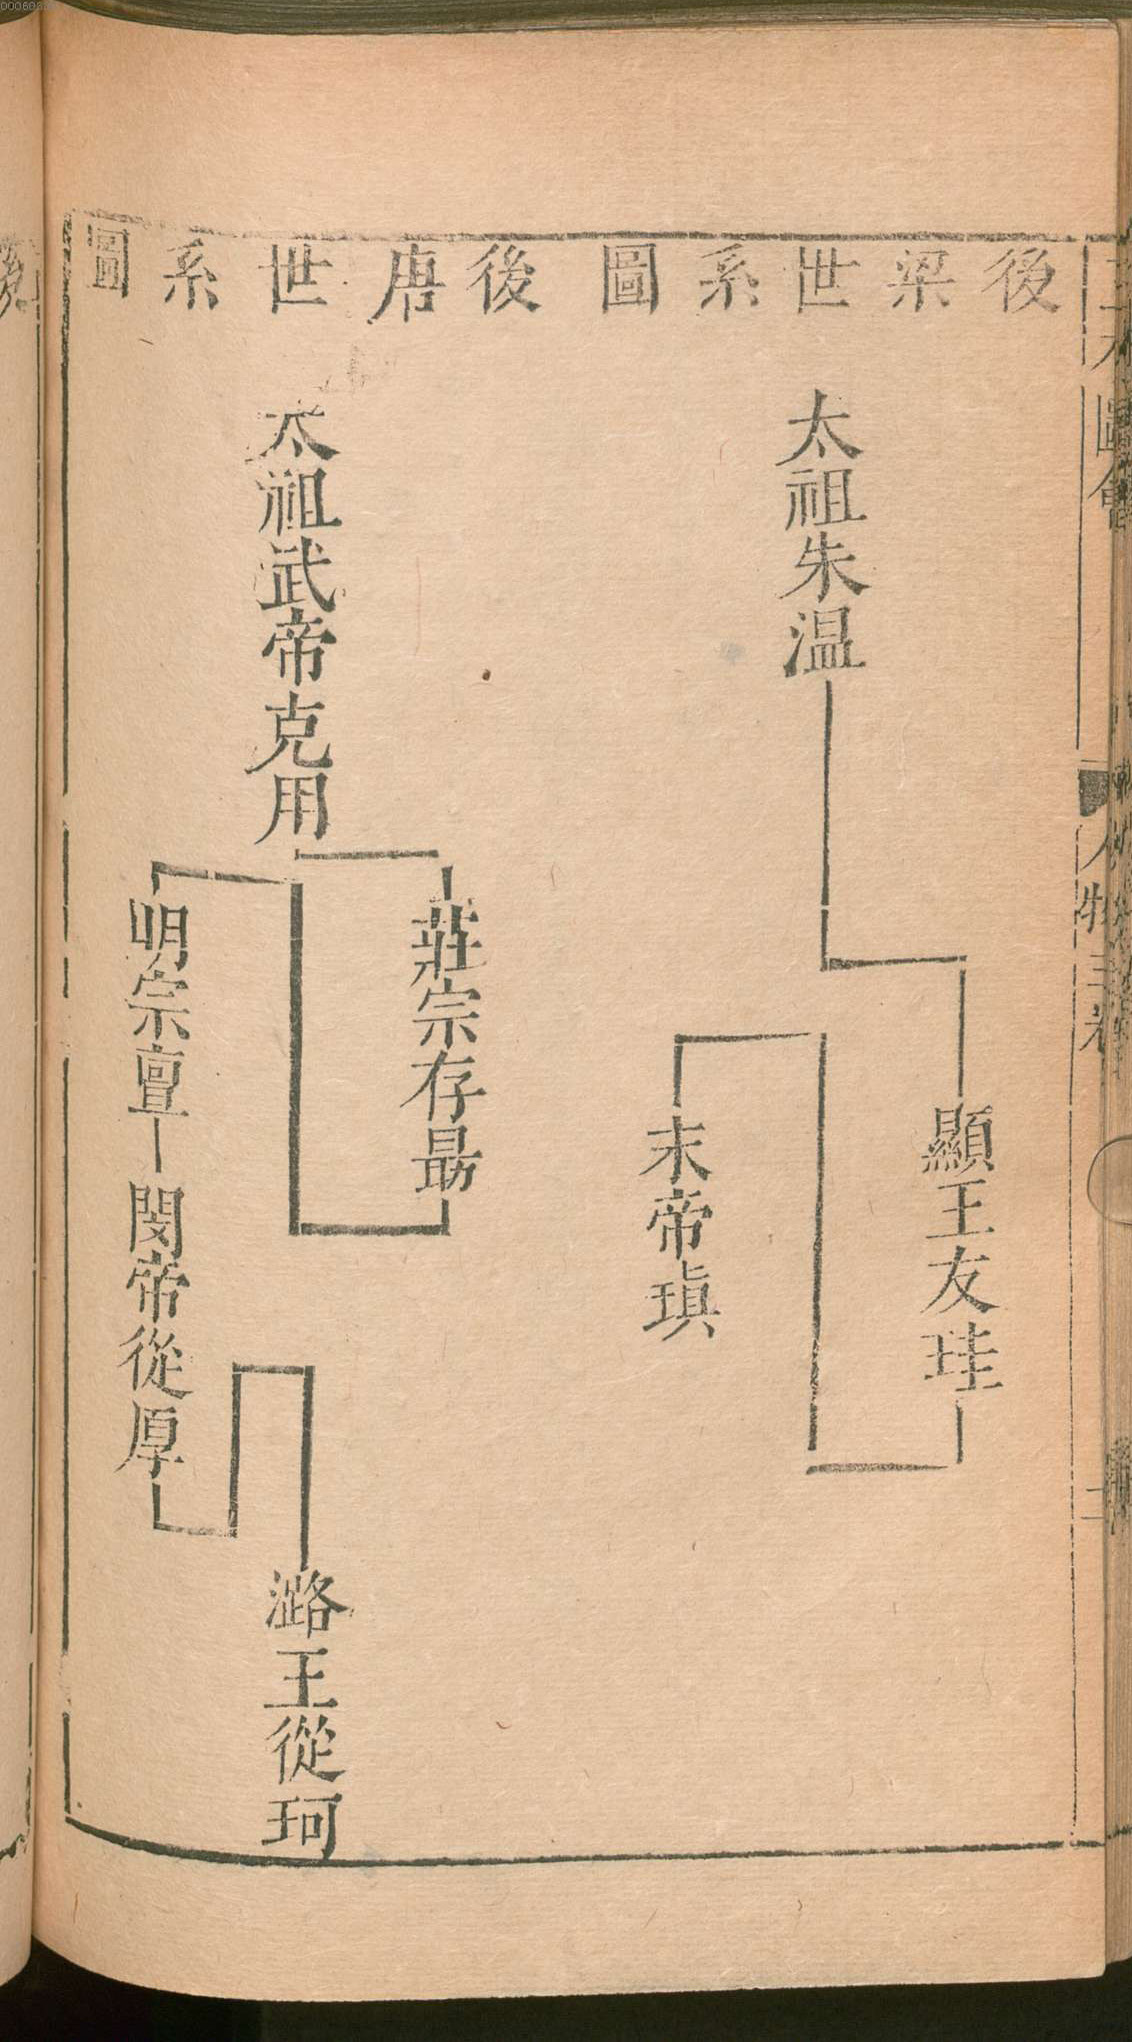 後梁世系圖
太祖朱温
顯王友珪
末帝瑱
後唐世系圖
太祖武帝克用
莊宗存勗
明宗亶
閔帝從厚
潞王從珂